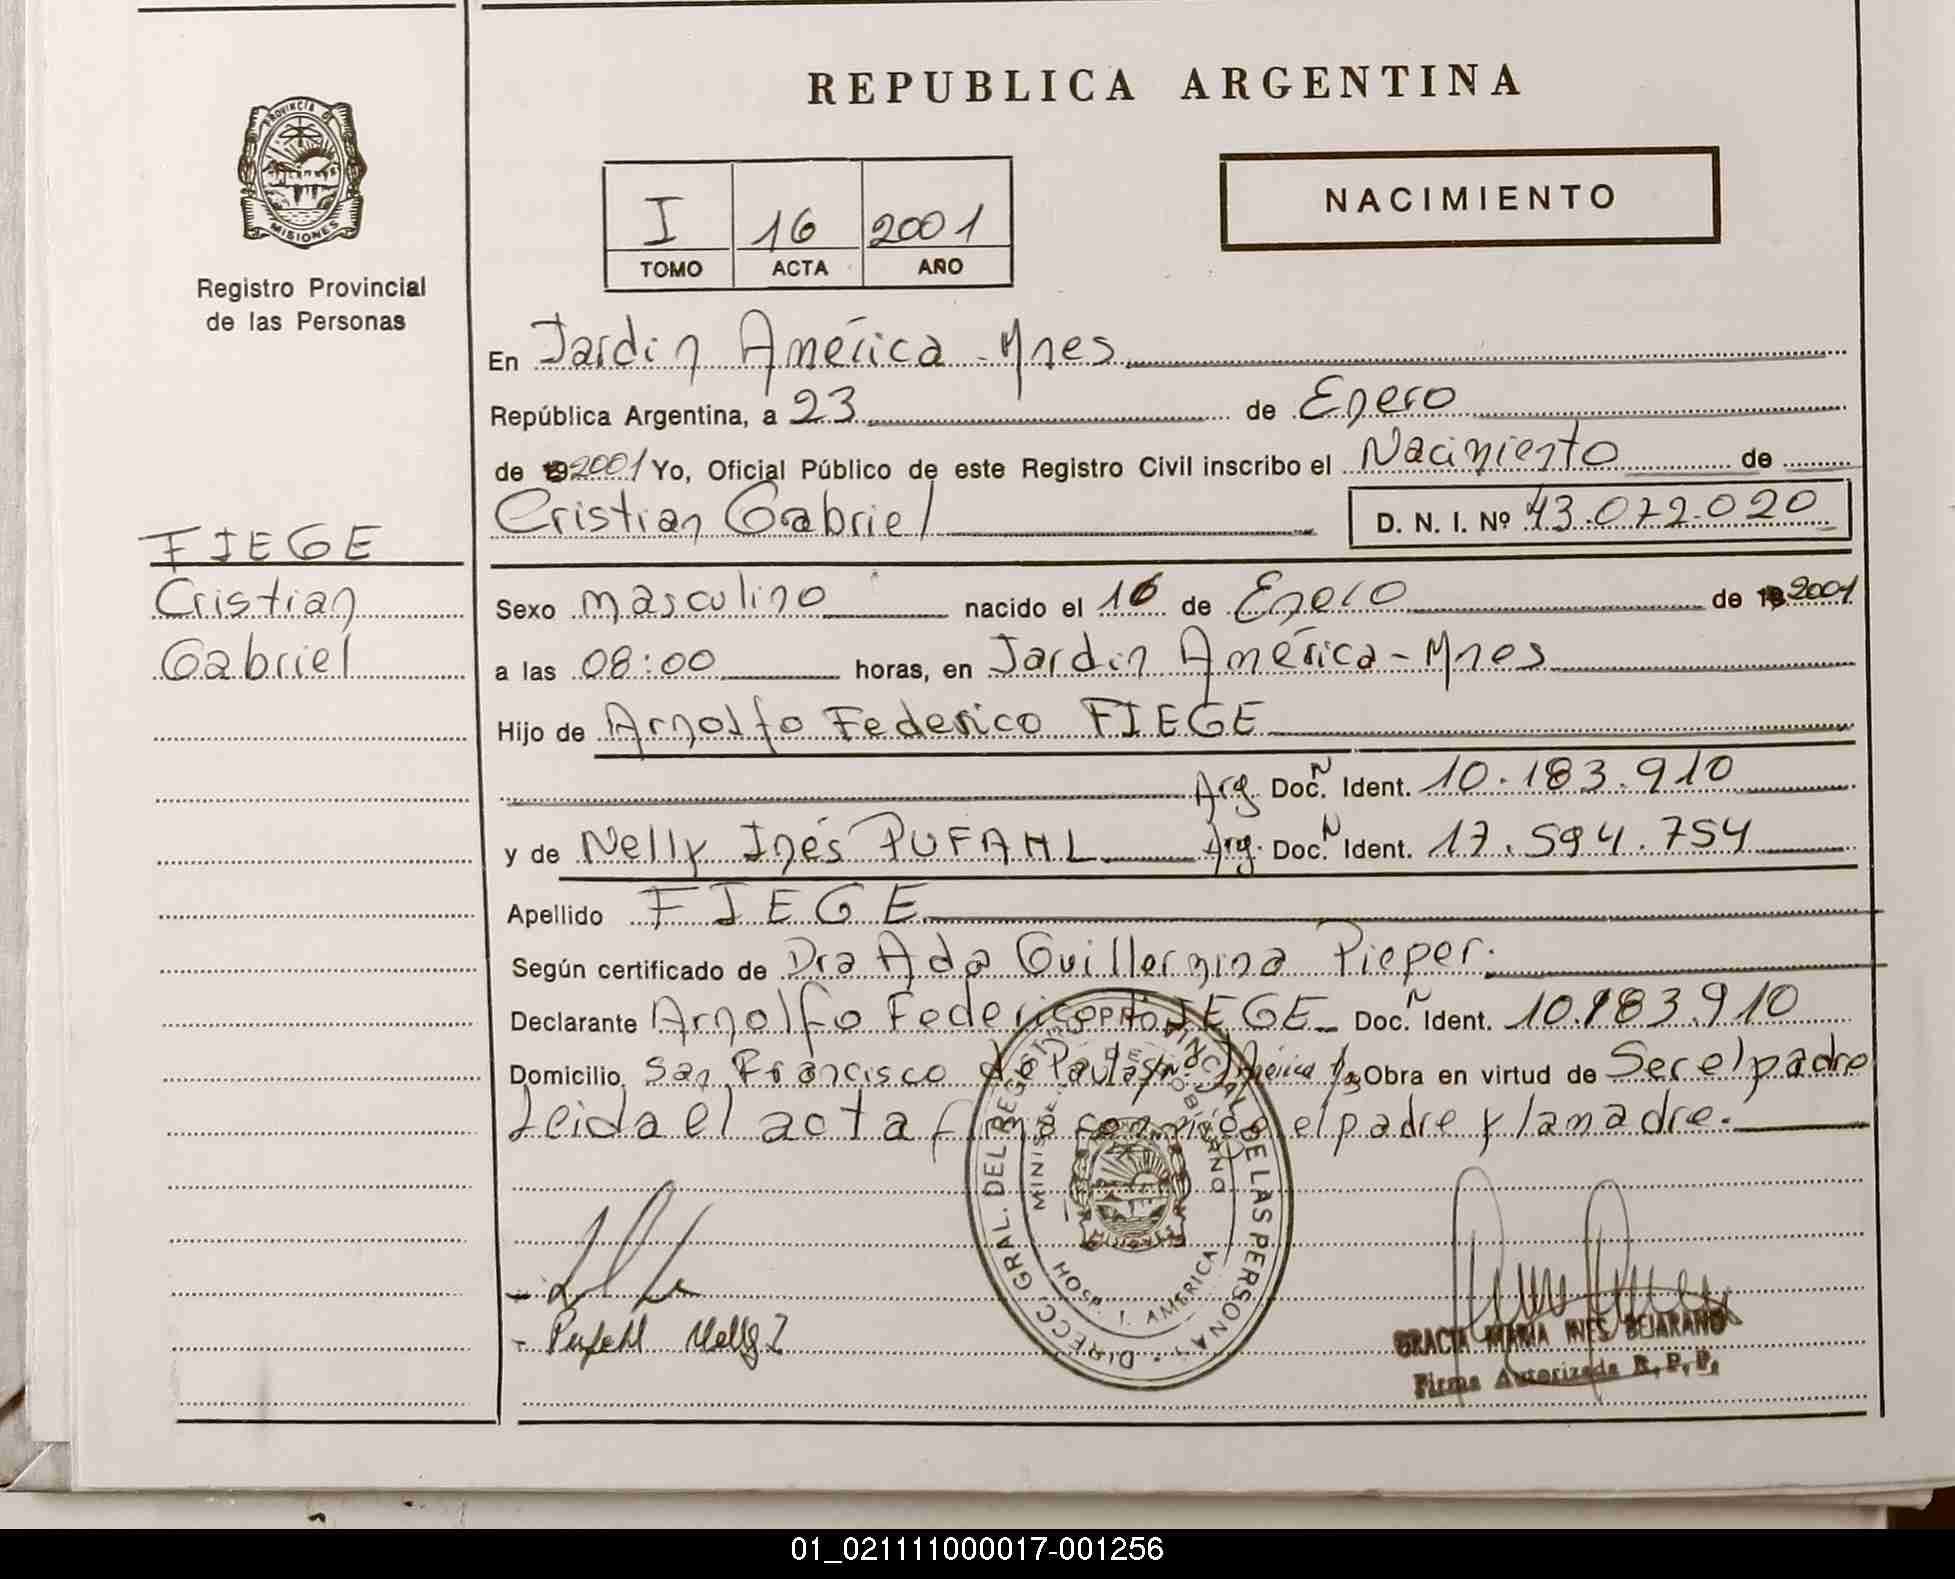 REPUBLICA ARGENTINA
PROVINCIA DE
MISIONES
Registro Provincial
de las Personas
I 16 2001
TOMO ACTA AÑO
NACIMIENTO
En Jardín América - Mnes
República Argentina, a 23 de Enero
de 2001 Yo, Oficial Público de este Registro Civil inscribo el Nacimiento de
Cristian Gabriel D. N. I. Nº 43.072.020
FIEGE
Cristian
Gabriel
Sexo masculino nacido el 16 de Enero de 2001
a las 08:00 horas, en Jardín América - Mnes
Hijo de Arnolfo Federico FIEGE
Arg. Doc. N Ident. 10.183.910
y de Nelly Inés PUFAHL Arg. Doc. N Ident. 17.594.754
Apellido FIEGE
Según certificado de Dra Ada Guillermina Pieper.
Declarante Arnolfo Federico FIEGE Doc. N Ident. 10.183.910
Domicilio San Francisco de Paula J. América Obra en virtud de Ser el padre
Leida el acta firma conmigo el padre y la madre.
DIRECC. GRAL. DEL REGISTRO PROVINCIAL DE LAS PERSONAS
MINIST. DE GOBIERNO
HOSP. J. AMERICA
MISIONES
- Pufahl Nelly I
GRACIA MARIA INES BEJARANO
Firma Autorizada R. P. P.
01_021111000017-001256